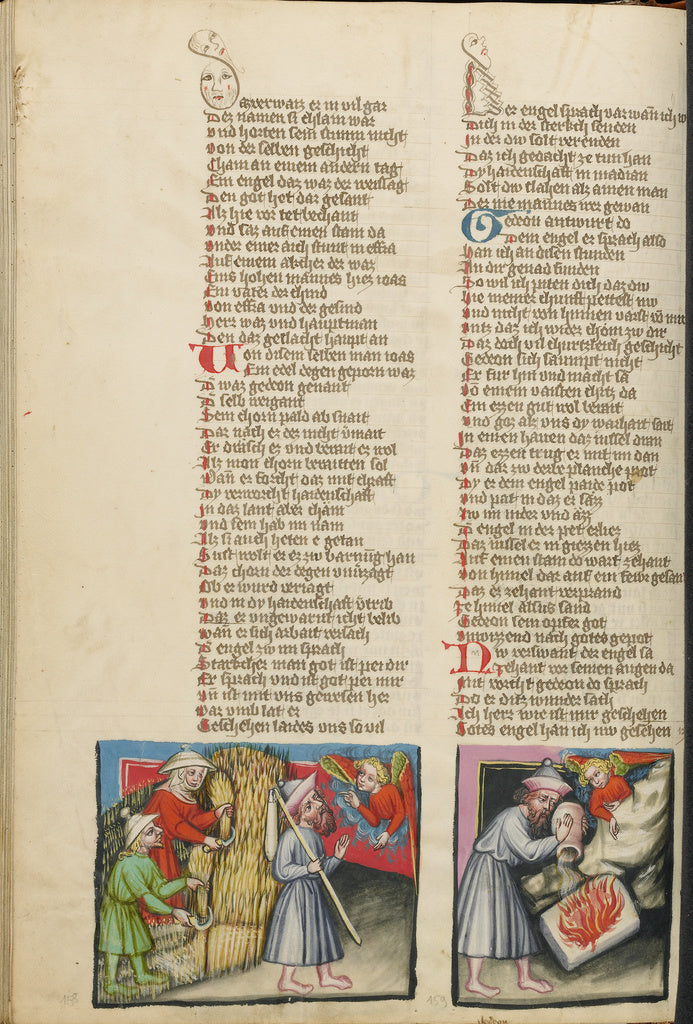 Der namen si chlain war
Vnd horten sein stimm nicht
Von der selben geschicht
Cham an einem andern tag
Ein engel daz waz der weissag
Den got het dar gesant
Alz hie vor tet bechant
Vnd saz auf einen stam da
Vnder einer aich stunt in effra
Auf einem akcher der waz
Eins hohen mannes hiez ioas
Ein vater der chind
Von effra vnd der gesind
Herr waz vnd hauptman
Den daz geslacht haupt an
Von disem selben man ioas
Ein edel degen geporn waz
D waz gedeon genant
D selb weigant
Sein chorn pald ab snait
Dar nach er dez nicht vmait
Er drasch ez vnd berait ez wol
Alz mon chorn beraitten sol
Wann er forcht daz mit chraft
Dy verworcht haidenschaft
In daz lant aber cham
Vnd sein hab im nam
Alz si auch heten e getan
Sust wolt er ez zw barnung han
Daz chorn der degen vnuerzagt
Ob er wurd veriagt
Vnd in dy haidenschaft vtrib
Daz er vngewarnt icht belib
Wann er sich arbait versach
D engel zw im sprach
Starkcher man got ist pei dir
Er sprach vnd ist got pei mir
Vn ist mit vns gewesen her
War vmb lat er
Geschehen laides vns so vil
Der engel sprach var wann ich w
Dich in der sterkch senden
In der dw solt verenden
Daz ich gedacht ze tun han
Dy haidenschaft in madian
Solt dw slahen alz ainen man
Der nie mannes wer gewan
Gedeon antwurt do
Dem engel er sprach also
Han ich an disen stunden
In dir genad funden
So wil ich piten dich daz dw
Hie meiner chunft peitest nw
Vnd nicht von hinnen varst vo mir
Vntz daz ich wider chom zw dir
Daz doch vil churtzleich geschicht
Gedeon sich saumpt nicht
Er fur hin vnd macht sa
Vo einem vaisten chitz da
Ein ezzen gut wol berait
Vnd goz alz vns dy warhait sait
In einen hauen daz iussel dran
Daz ezzen trug er mit im dan
Vn dar zw derbe planche prot
Dy er dem engel paide pot
Vnd pat in daz er saz
D engel in der pet erliez
Daz iussel er in giezzen hiez
Auf einen stain do wart zehant
Von himel dar auf ein fewr gesan
Daz ez zehant verprand
Ze himel alsus sand
Gedeon sein opfer got
Nw verswant der engel sa
Zehant vor seinen augen da
Mit vorcht gedeon do sprach
Do er ditz wunder sach
Ich herr wie ist mir geschehen
Gotes engel han ich nw gesehen
158
159